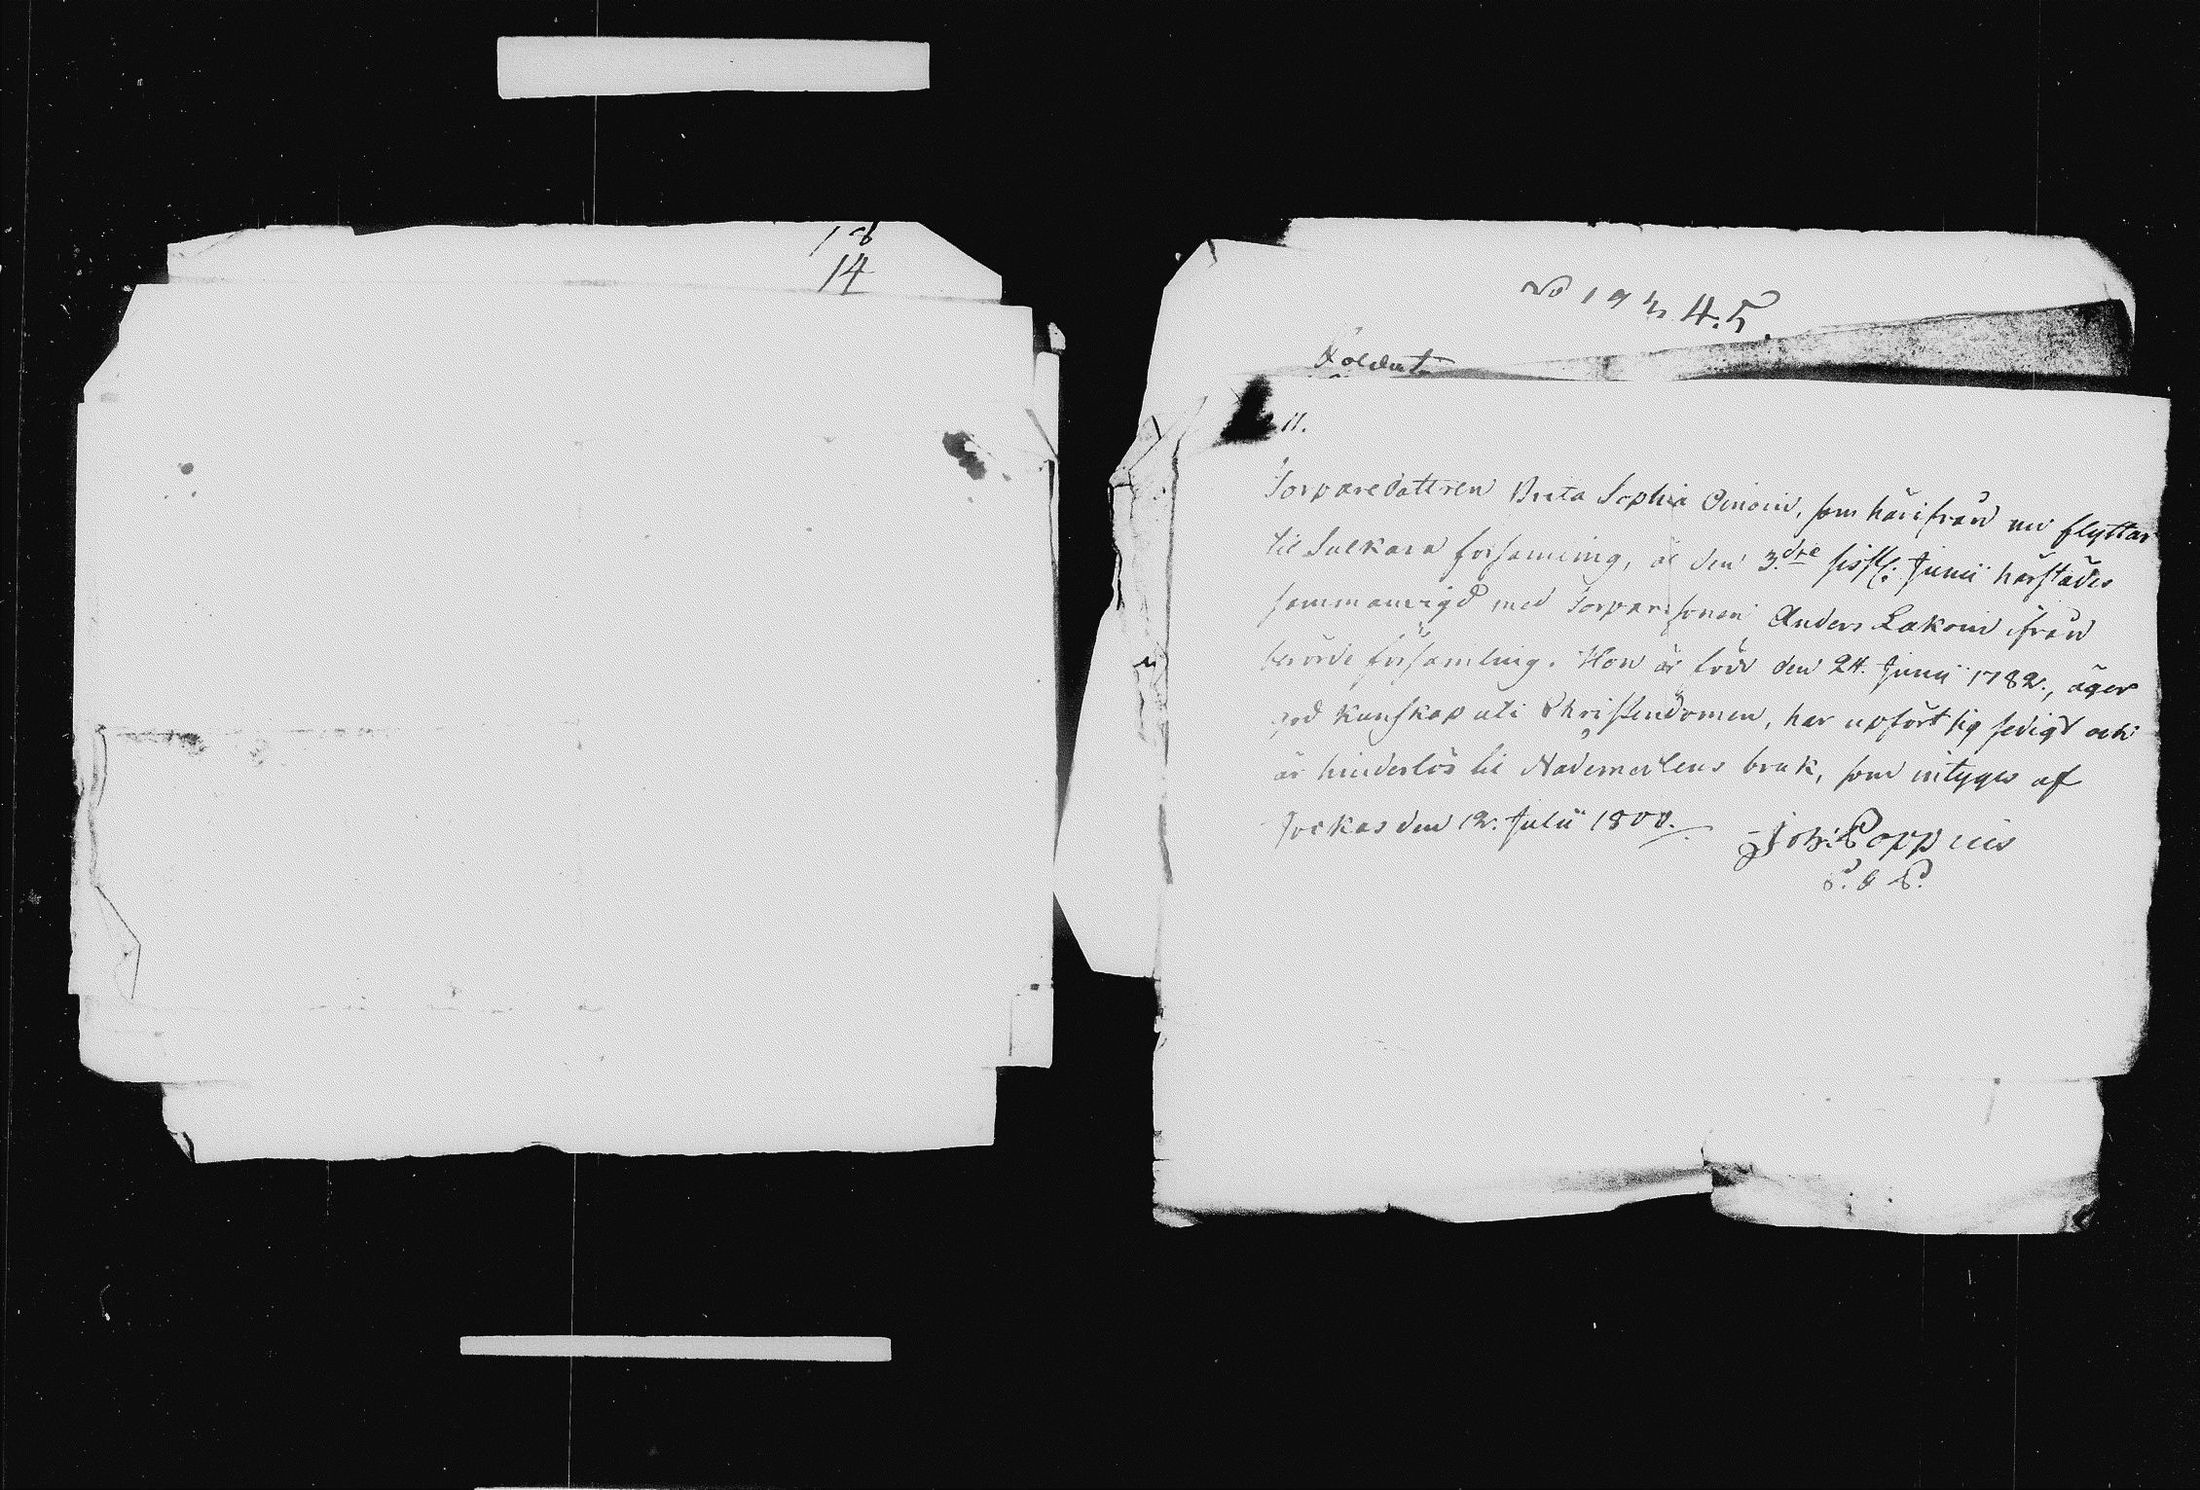 14
No 1 9 3. 4. 5.
Soldat
11.
Torparedottren Brita Sophia Oinoin, som härifrån nu flyttar
til Sulkava församling, är den 3.dre sistl: Junii härstädes
sammanvigd med Torparesonen Anders Lakoin ifrån
berörde församling. Hon är född den 24. Junii 1782., äger
god kunskap uti Christendomen, har upfört sig sedigt och
är hinderlös til Nådemedlens bruk, som intygas af
Jockas den 12. Julii 1800.
Joh: Poppius
P. & P.